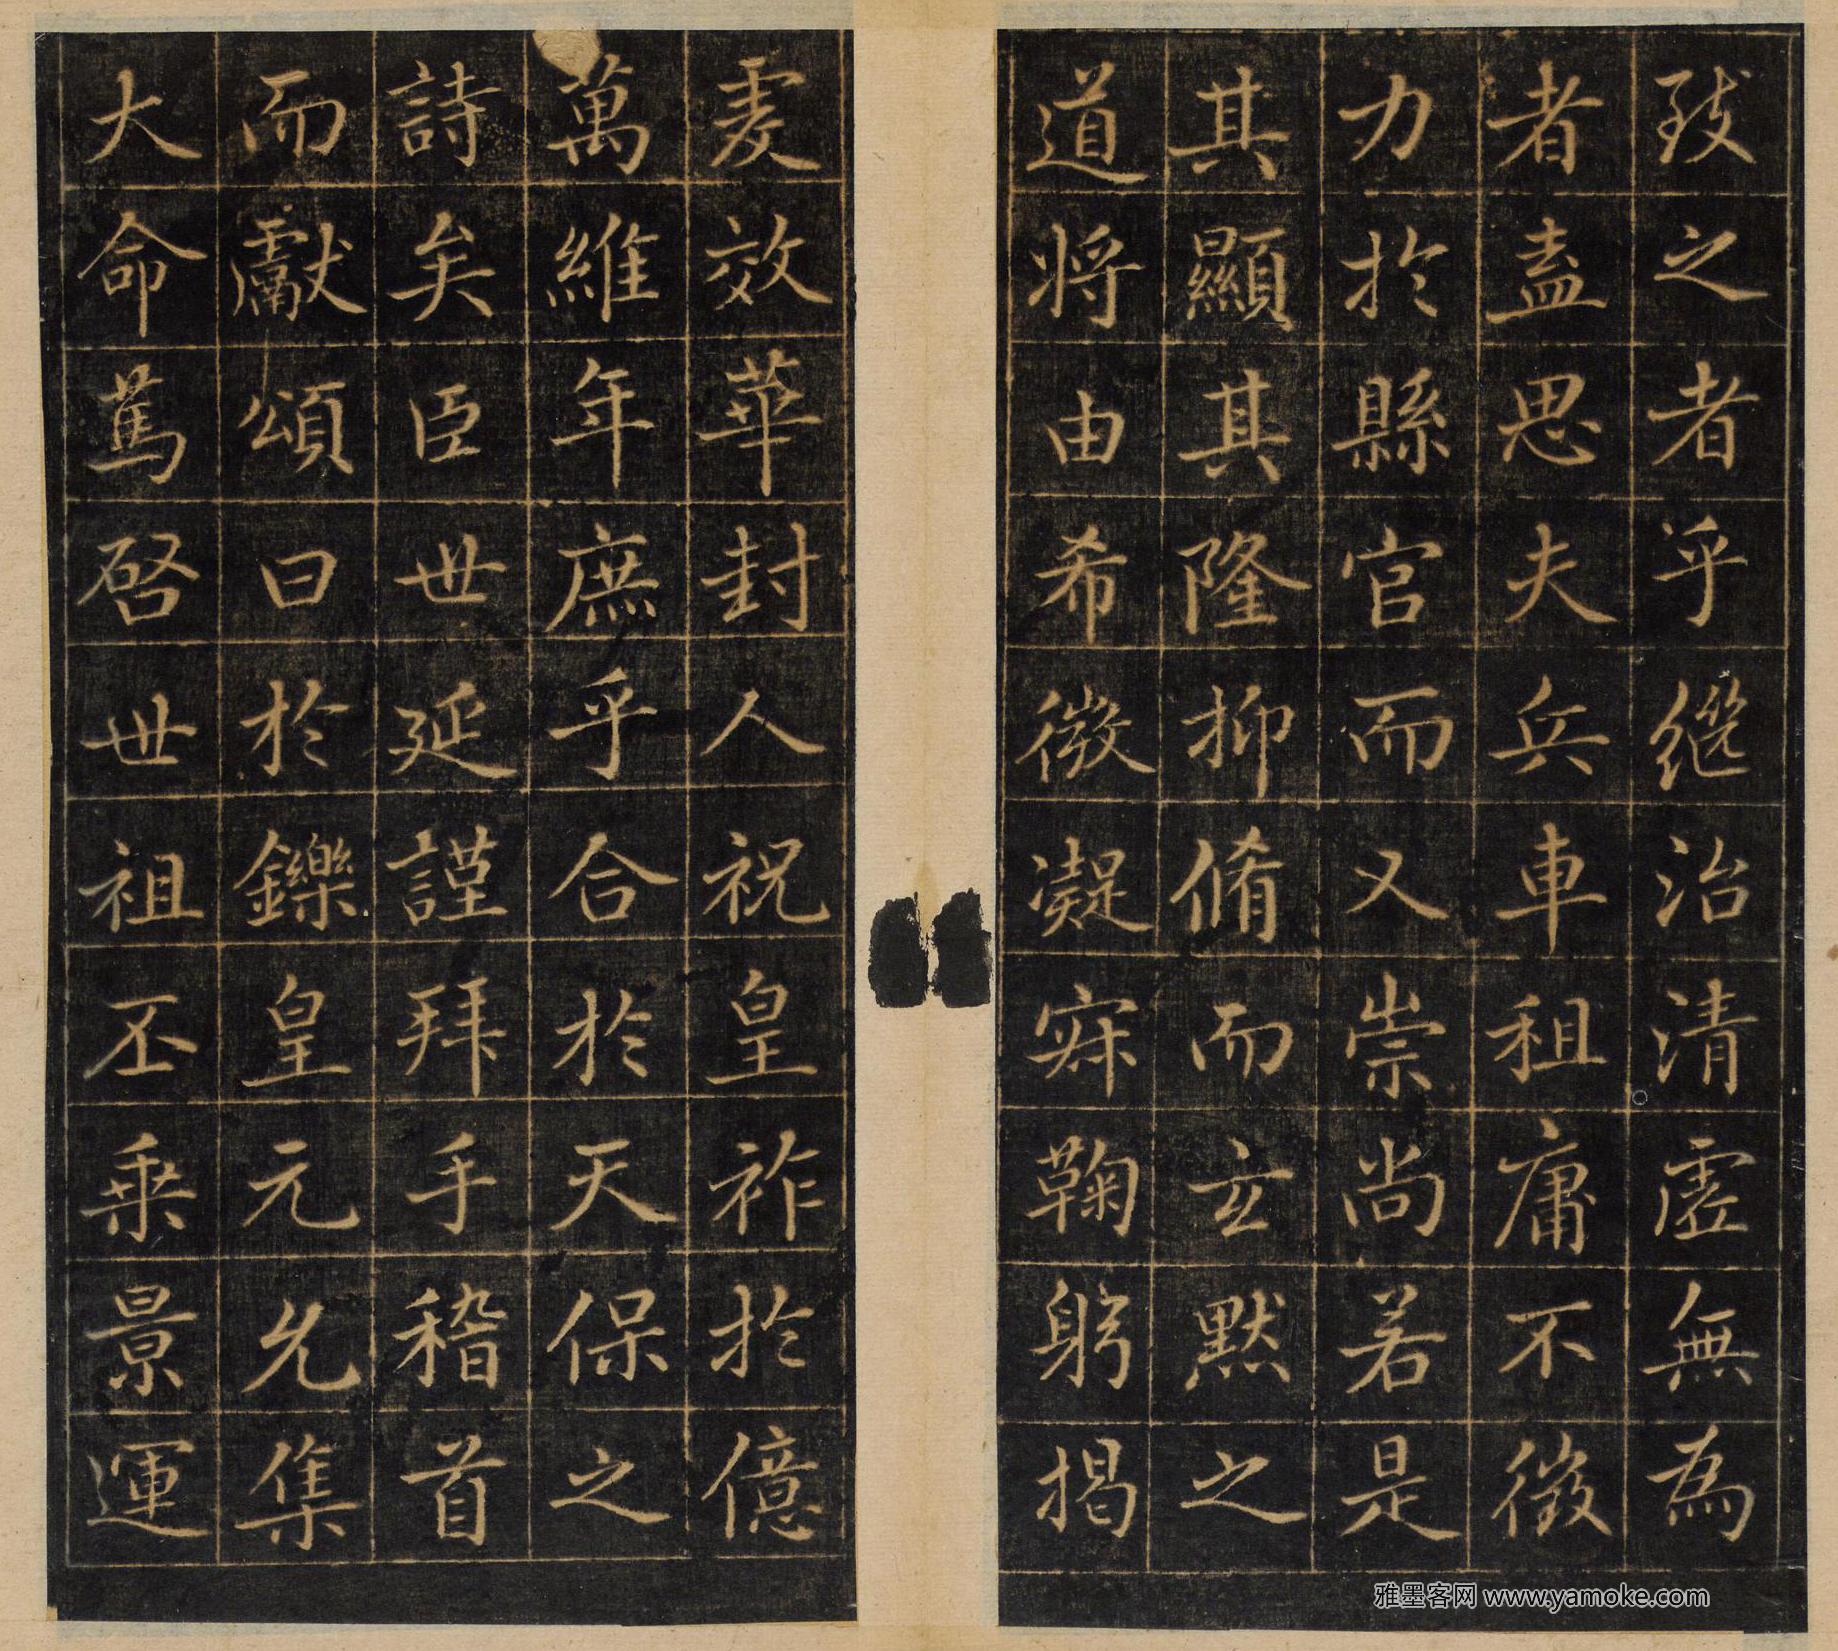 致之者乎繼治清虛無為
者盍思夫兵車租庸不徵
力於縣官而又崇尚若是
其顯其隆抑脩而玄默之
道將由希微凝寂鞠躬揭
虔效華封人祝皇祚於億
萬維年庶乎合於天保之
詩矣臣世延謹拜手稽首
而獻頌曰於鑠皇元允集
大命篤啓世祖丕乗景運
雅墨客网 www.yamoke.com